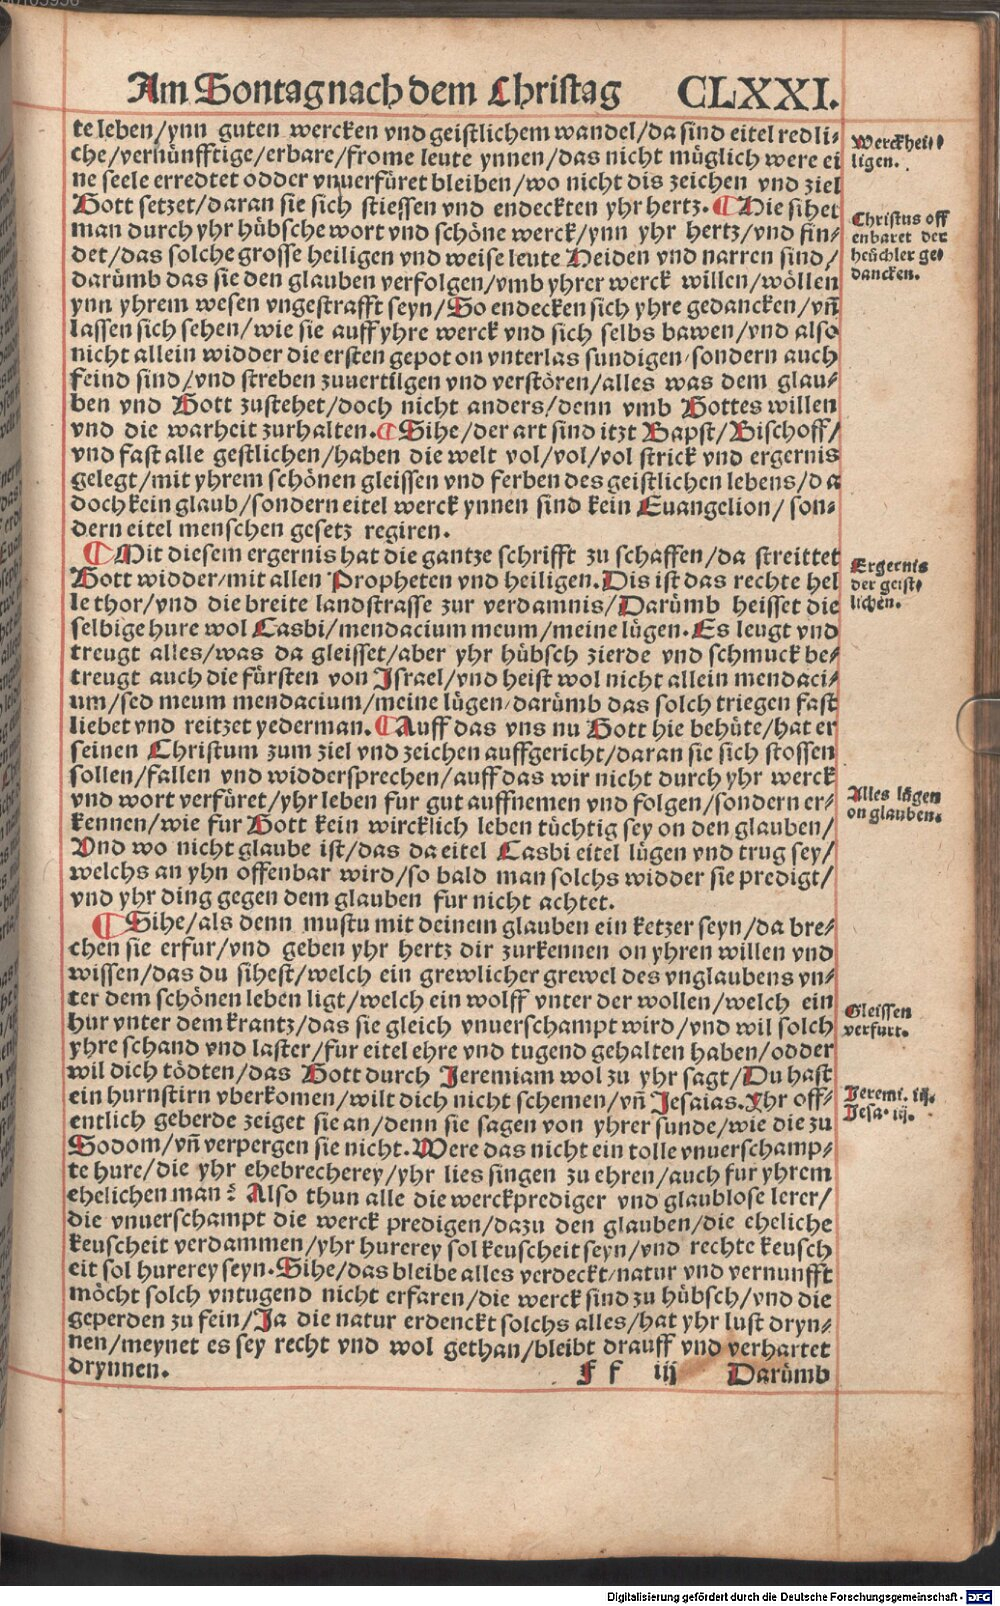 Am Sontag nach dem Christag CLXXI.
te leben/ynn guten wercken vnd geistlichem wandel/da sind eitel redli-
che/vernünfftige/erbare/frome leute ynnen/das nicht müglich were ei
ne seele erredtet odder vnuerfüret bleiben/wo nicht dis zeichen vnd ziel
Gott setzet/daran sie sich stiessen vnd endeckten yhr hertz. ¶ Hie sihet
man durch yhr hübsche wort vnd schöne werck/ynn yhr hertz/vnd fin-
det/das solche grosse heiligen vnd weise leute Heiden vnd narren sind/
darümb das sie den glauben verfolgen/vmb yhrer werck willen/wöllen
ynn yhrem wesen vngestrafft seyn/So endecken sich yhre gedancken/vñ
lassen sich sehen/wie sie auff yhre werck vnd sich selbs bawen/vnd also
nicht allein widder die ersten gepot on vnterlas sundigen/sondern auch
feind sind/vnd streben zuuertilgen vnd verstören/alles was dem glau-
ben vnd Gott zustehet/doch nicht anders/denn vmb Gottes willen
vnd die warheit zurhalten. ¶ Sihe/der art sind itzt Bapst/Bischoff/
vnd fast alle gestlichen/haben die welt vol/vol/vol strick vnd ergernis
gelegt/mit yhrem schönen gleissen vnd ferben des geistlichen lebens/da
doch kein glaub/sondern eitel werck ynnen sind kein Euangelion/son-
dern eitel menschen gesetz regiren.
¶ Mit diesem ergernis hat die gantze schrifft zu schaffen/da streittet
Gott widder/mit allen Propheten vnd heiligen. Dis ist das rechte hel
le thor/vnd die breite landstrasse zur verdamnis/Darümb heisset die
selbige hure wol Casbi/mendacium meum/meine lügen. Es leugt vnd
treugt alles/was da gleisset/aber yhr hübsch zierde vnd schmuck be-
treugt auch die fürsten von Israel/vnd heist wol nicht allein mendaci-
um/sed meum mendacium/meine lügen/darümb das solch triegen fast
liebet vnd reitzet yederman. ¶ Auff das vns nu Gott hie behüte/hat er
seinen Christum zum ziel vnd zeichen auffgericht/daran sie sich stossen
sollen/fallen vnd widdersprechen/auff das wir nicht durch yhr werck
vnd wort verfüret/yhr leben fur gut auffnemen vnd folgen/sondern er-
kennen/wie fur Gott kein wircklich leben tüchtig sey on den glauben/
Vnd wo nicht glaube ist/das da eitel Casbi eitel lügen vnd trug sey/
welchs an yhn offenbar wird/so bald man solchs widder sie predigt/
vnd yhr ding gegen dem glauben fur nicht achtet.
¶ Sihe/als denn mustu mit deinem glauben ein ketzer seyn/da bre-
chen sie erfur/vnd geben yhr hertz dir zurkennen on yhren willen vnd
wissen/das du sihest/welch ein grewlicher grewel des vnglaubens vn-
ter dem schönen leben ligt/welch ein wolff vnter der wollen/welch ein
hur vnter dem krantz/das sie gleich vnuerschampt wird/vnd wil solch
yhre schand vnd laster/fur eitel ehre vnd tugend gehalten haben/odder
wil dich tödten/das Gott durch Jeremiam wol zu yhr sagt/Du hast
ein hurnstirn vberkomen/wilt dich nicht schemen/vñ Jesaias. Yhr off-
entlich geberde zeiget sie an/denn sie sagen von yhrer sunde/wie die zu
Sodom/vñ verpergen sie nicht. Were das nicht ein tolle vnuerschamp-
te hure/die yhr ehebrecherey/yhr lies singen zu ehren/auch fur yhrem
ehelichen man? Also thun alle die werckprediger vnd glaublose lerer/
die vnuerschampt die werck predigen/dazu den glauben/die eheliche
keuscheit verdammen/yhr hurerey sol keuscheit seyn/vnd rechte keusch
eit sol hurerey seyn. Sihe/das bleibe alles verdeckt/natur vnd vernunfft
möcht solch vntugend nicht erfaren/die werck sind zu hübsch/vnd die
geperden zu fein/Ja die natur erdenckt solchs alles/hat yhr lust dryn-
nen/meynet es sey recht vnd wol gethan/bleibt drauff vnd verhartet
drynnen.
F f iij Darümb
Werckhei-
ligen.
Christus off
enbaret der
heüchler ge-
dancken.
Ergernis
der geist-
lichen.
Alles lügen
on glauben.
Gleissen
verfurt.
Jeremi. iij.
Jesa. iij.
Digitalisierung gefördert durch die Deutsche Forschungsgemeinschaft - DFG